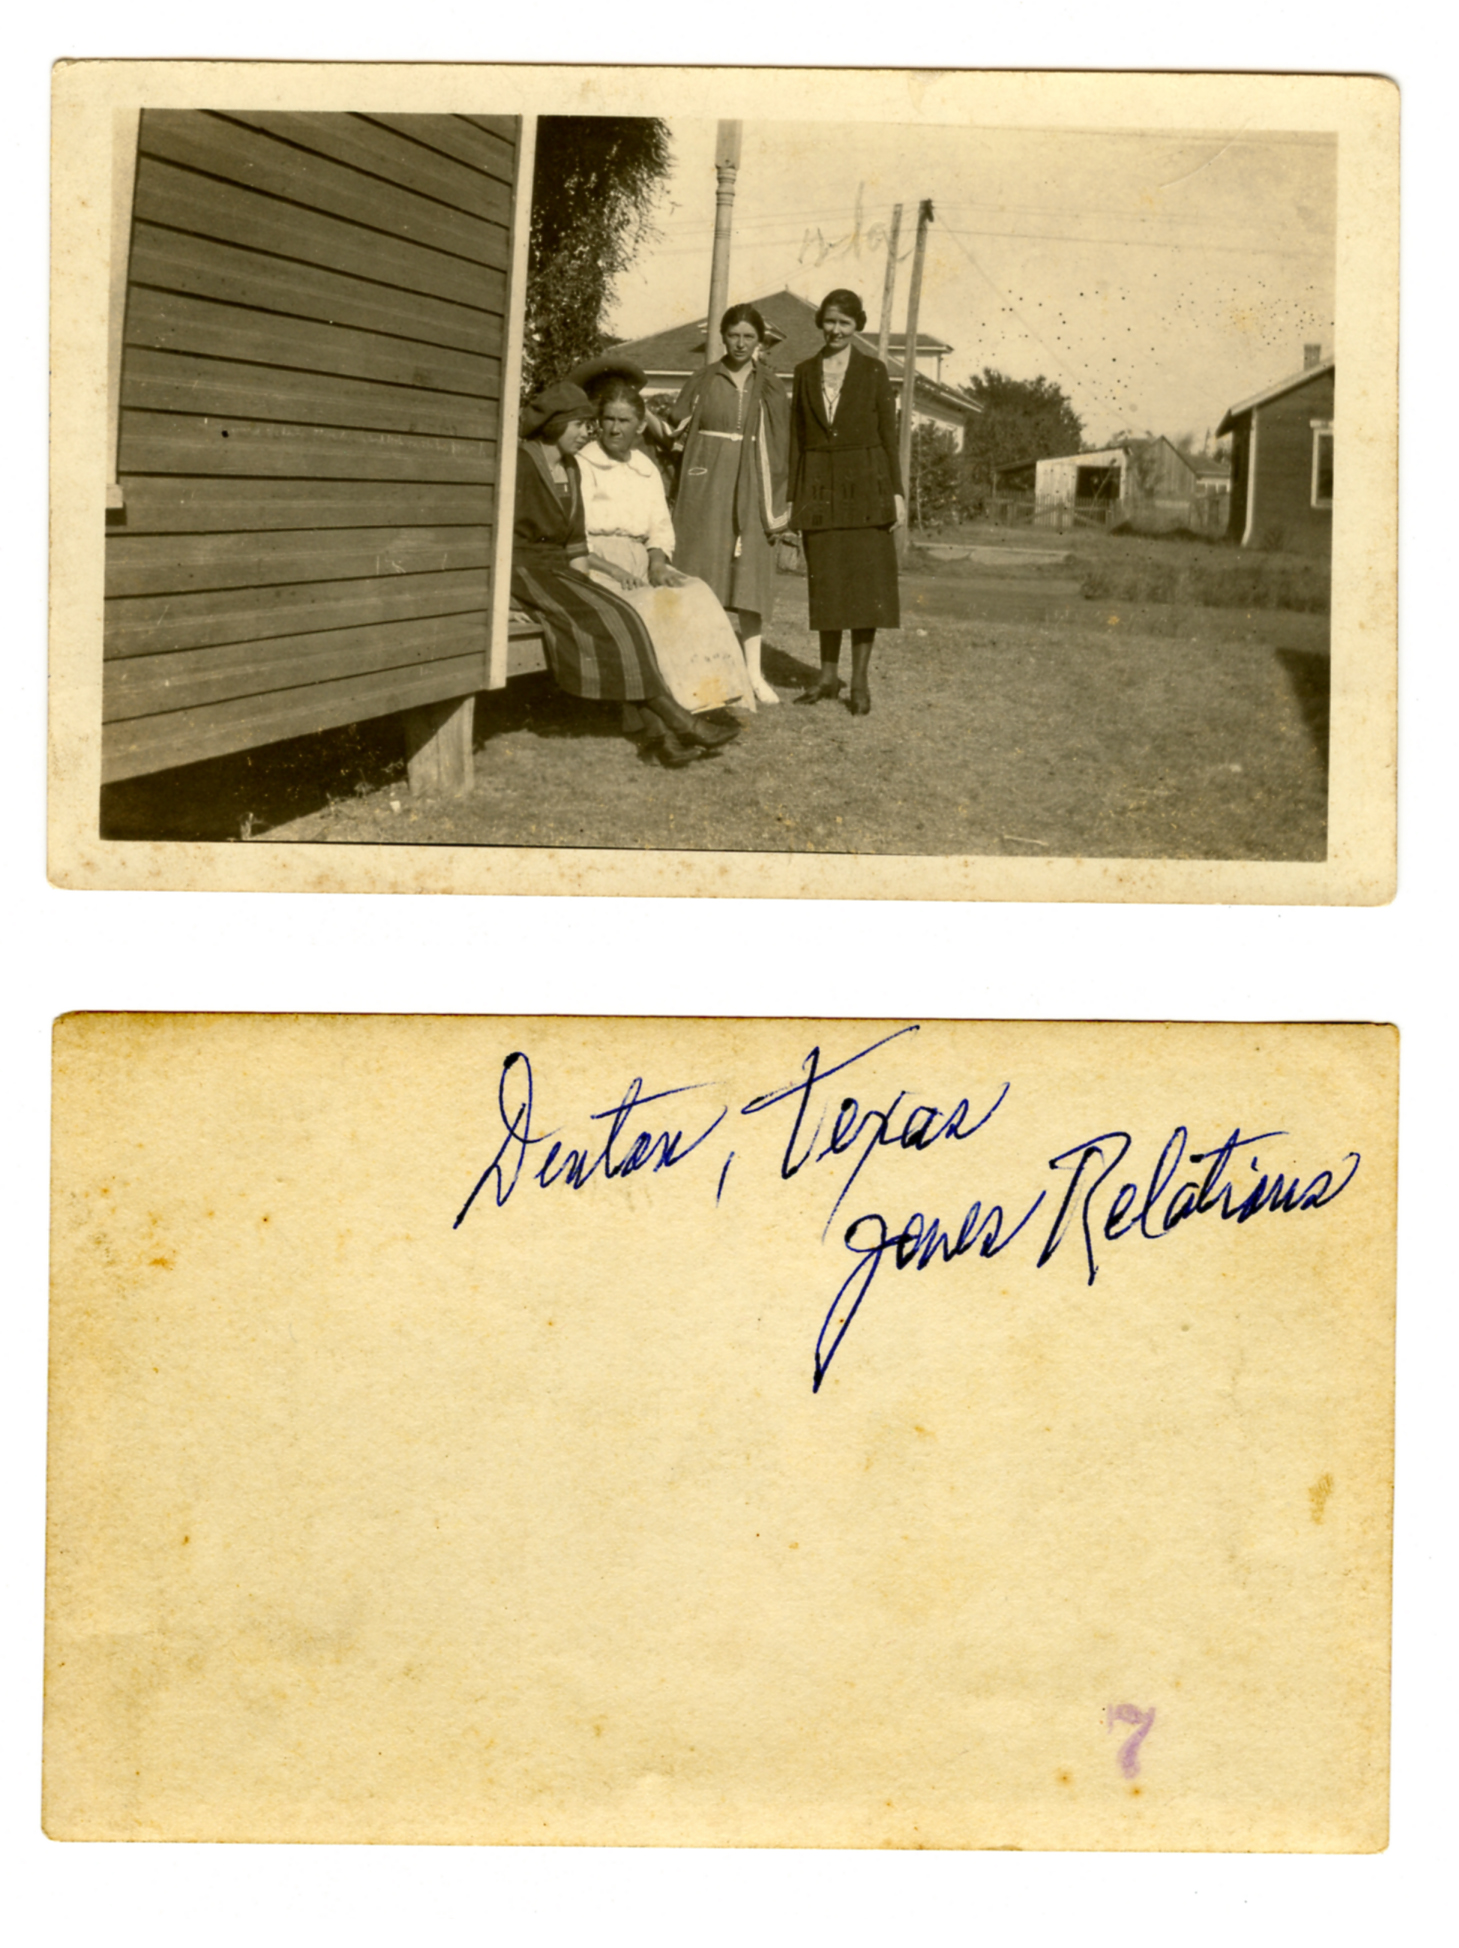 Denton, Texas
Jones Relations
7